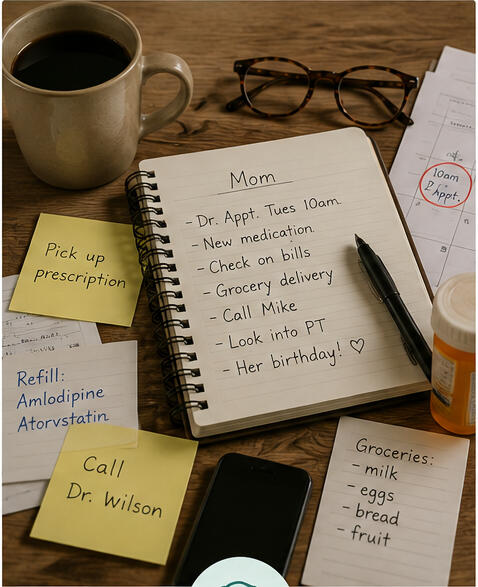 Mom
- Dr. Appt. Tues 10am
- New medication
- Check on bills
- Grocery delivery
- Call Mike
- Look into PT
- Her birthday! ♡
10am
Appt.
Pick up
prescription
Refill:
Amlodipine
Atorvstatin
Call
Dr. Wilson
Groceries:
- milk
- eggs
- bread
- fruit